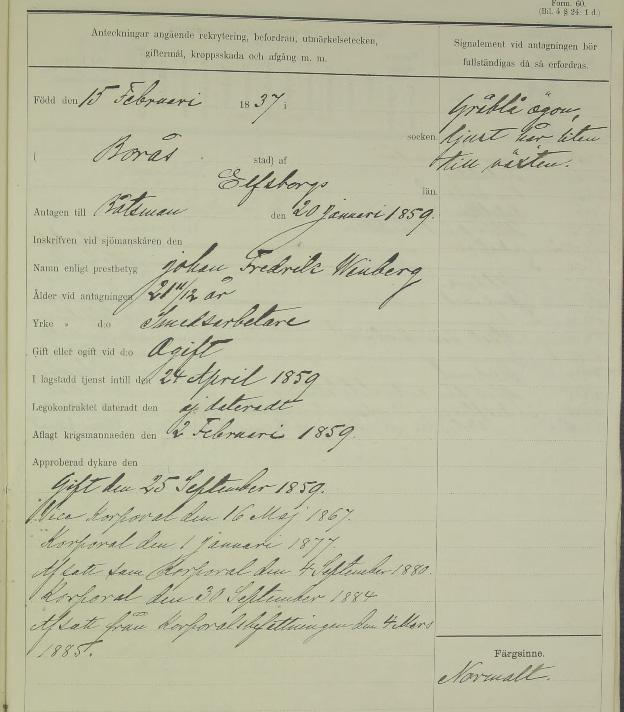 Form. 60.
(Bil. 4 § 24: 1 d.)
Anteckningar angående rekrytering, befordran, utmärkelsetecken,
giftermål, kroppsskada och afgång m. m.
Signalement vid antagningen bör
fullständigas då så erfordras.
Född den 15 Februari 1837 i
socken
( Borås stad) af
Elfsborgs län.
Gråblå ögon,
ljust hår liten
till växten.
Antagen till Båtsman den 20 januari 1859.
Inskrifven vid sjömanskåren den
Namn enligt prestbetyg Johan Fredrik Winberg
Ålder vid antagningen 21 11/12 år
Yrke » d:o Smedsarbetare
Gift eller ogift vid d:o Ogift
I lagstadd tjenst intill den 24 April 1859
Legokontraktet dateradt den ej dateradt
Aflagt krigsmannaeden den 2 Februari 1859.
Approberad dykare den
Gift den 25 September 1859.
Vice Korporal den 16 Maj 1867.
Korporal den 1 januari 1877.
Afsatt som Korporal den 4 September 1880.
Korporal den 30 September 1884
Afsatt från Korporalsbefattningen den 4 Mars
1885.
Färgsinne.
Normalt.